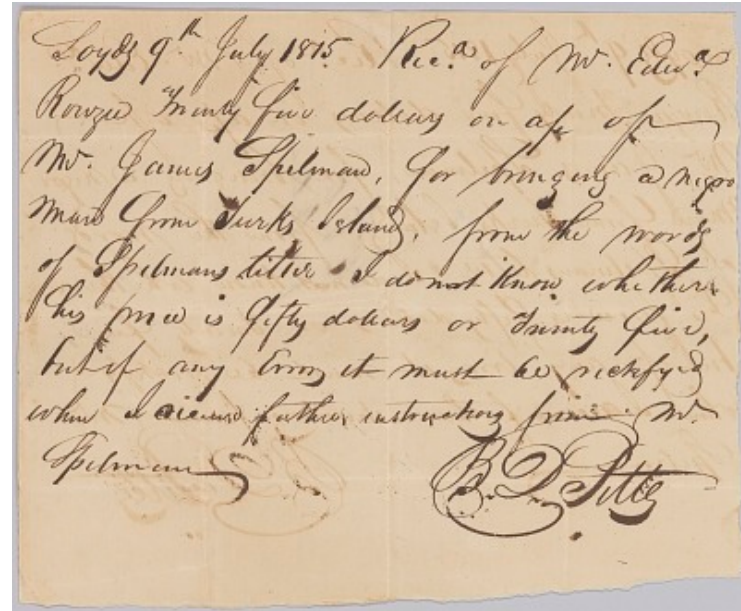 Loyds 9th July 1815. Recd of Mr. Edwd
Rowzee Twenty five dollars on a/c of
Mr. James Spilman, for bringing a negro
man from Turks Island, from the words
of Spilmans letter I do not know whether
his price is fifty dollars or Twenty five,
but if any Error it must be rectifyed
when I receive further instructions from Mr.
Spilman
B. D. Pitts